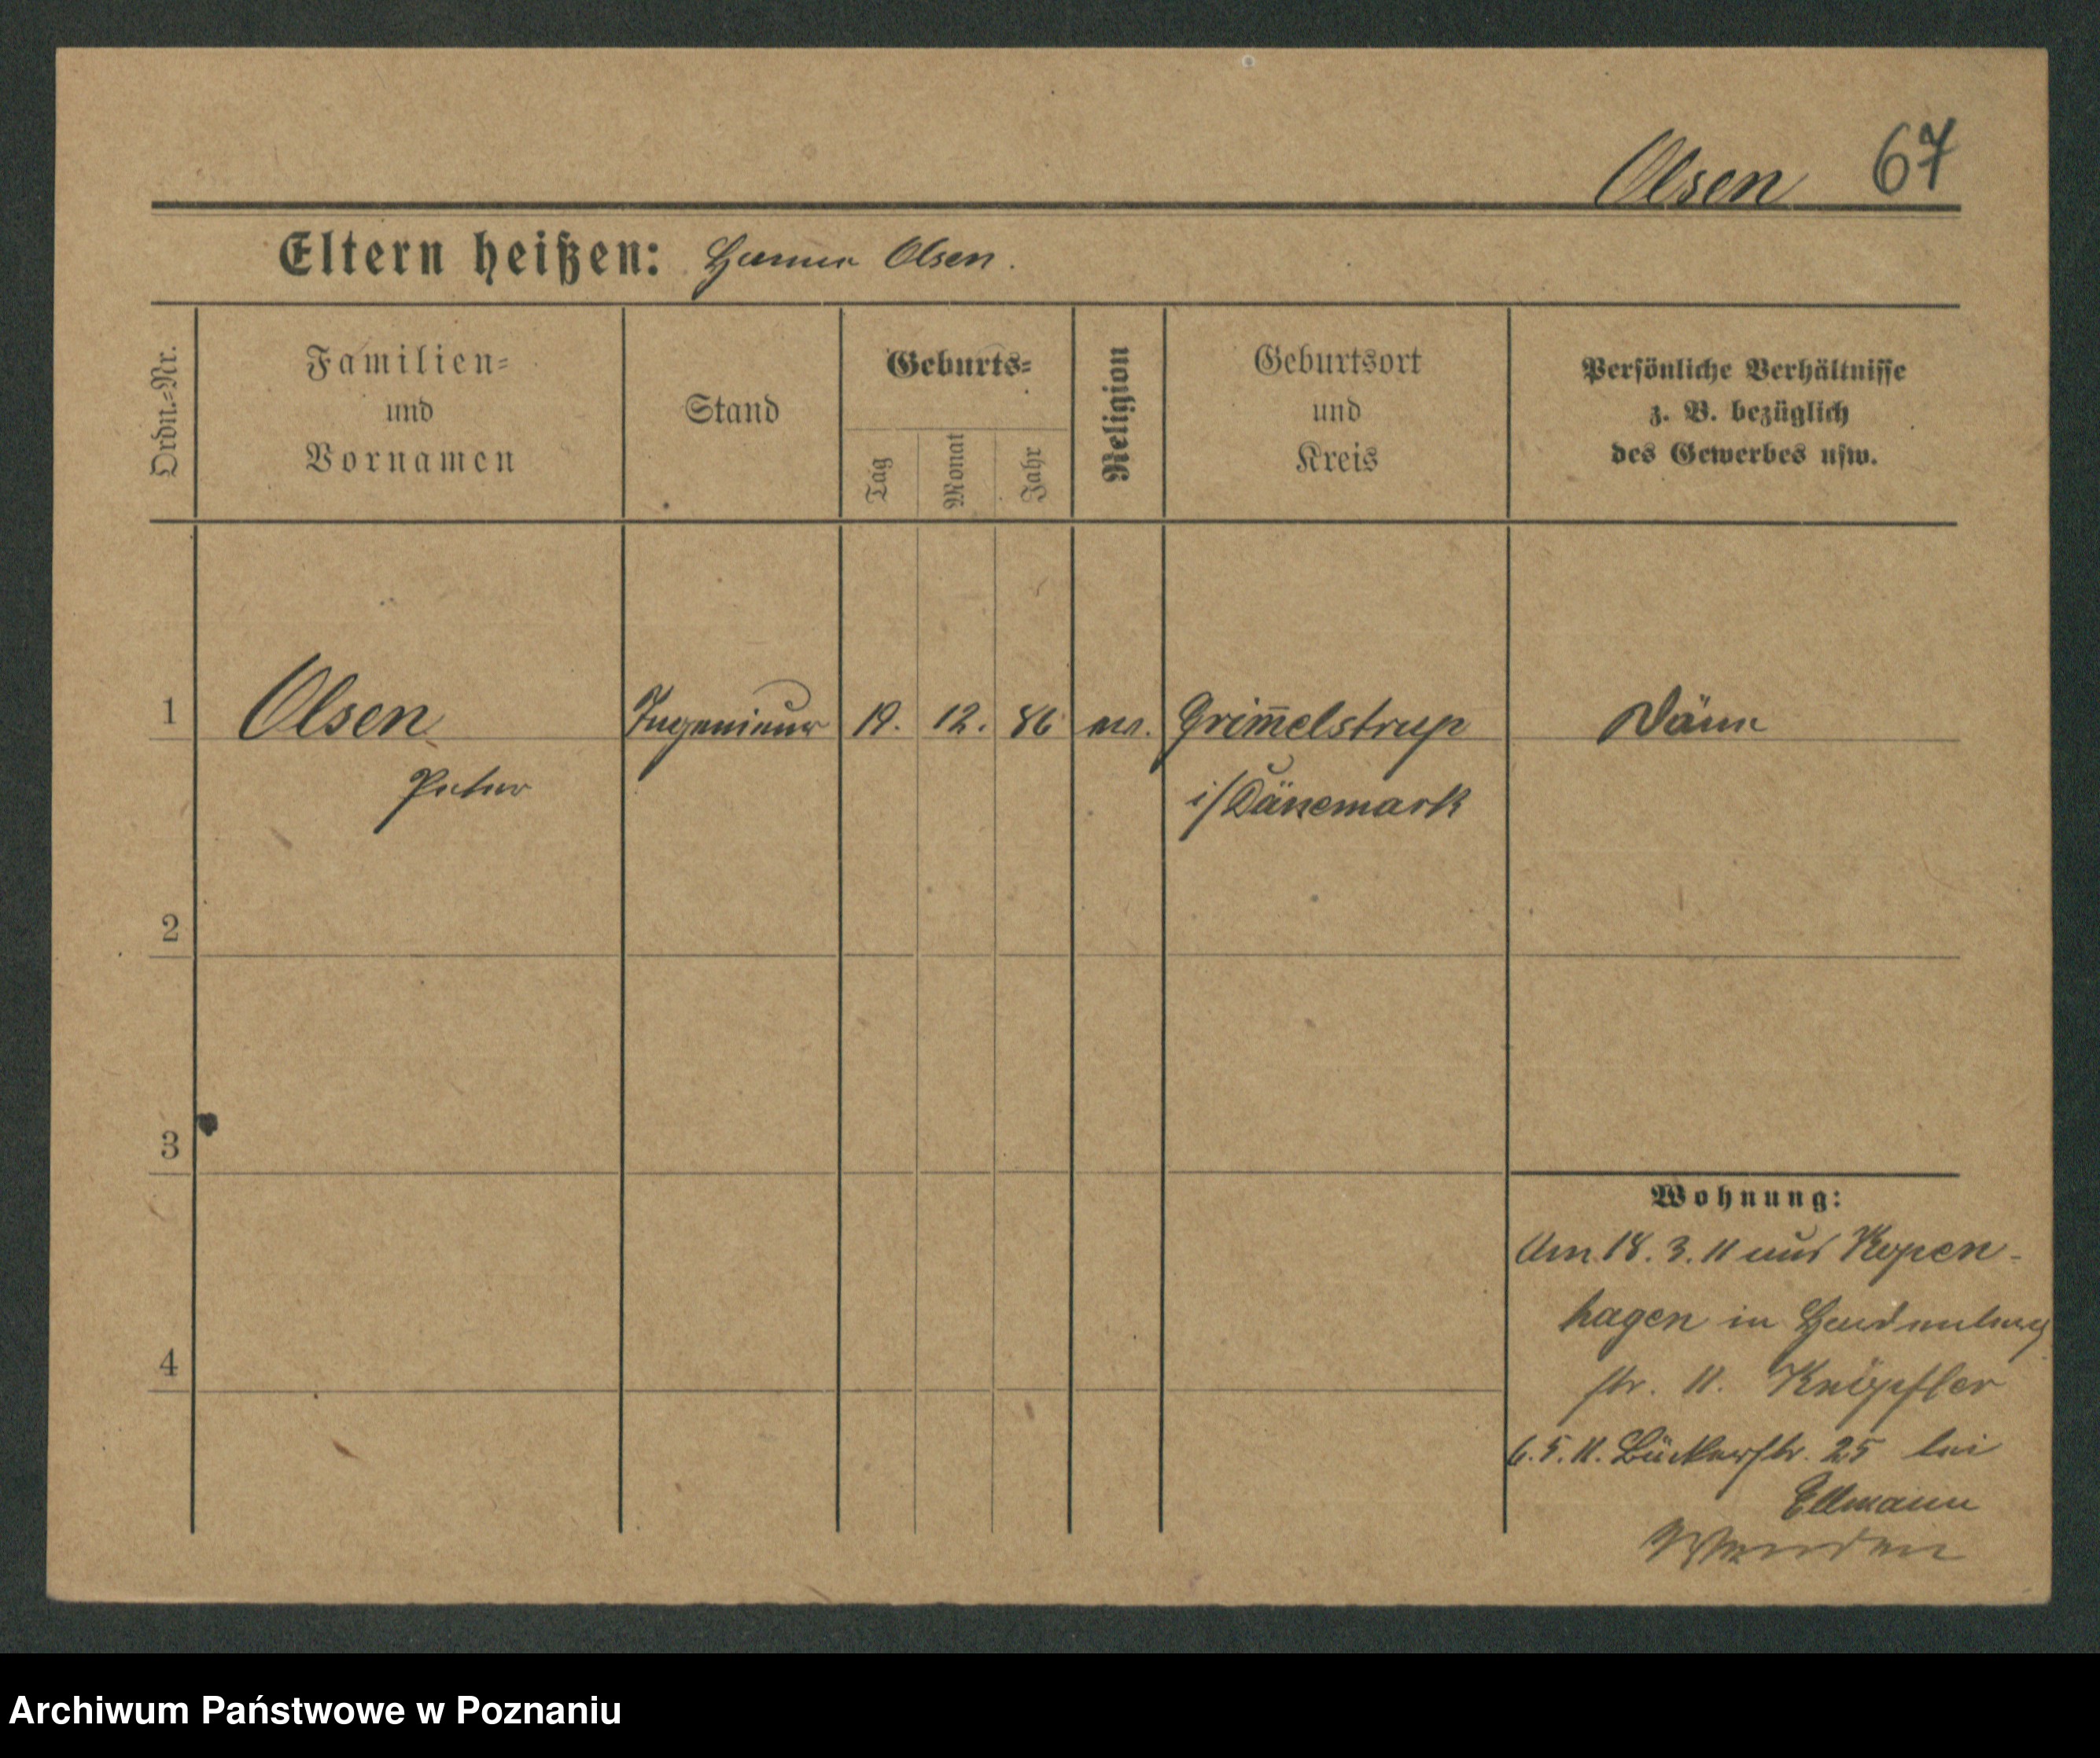 Olsen 67
Eltern heißen: Hanne Olsen.
Ordn.-Nr.
Familien-
und
Vornamen
Stand
Geburts-
Tag
Monat
Jahr
Religion
Geburtsort
und
Kreis
Persönliche Verhältnisse
z. B. bezüglich
des Gewerbes usw.
1 Olsen Ingenieur 19. 12. 86 ev. Grim̅elstrup Däne
Peter i/Dänemark
2
3
4
Wohnung:
Am 18. 3. 11 aus Kopen-
hagen in
str. 11. Knöpfler
6. 5. 11. Bäckerstr. 25 bei
Ellmann
Wenden
Archiwum Państwowe w Poznaniu